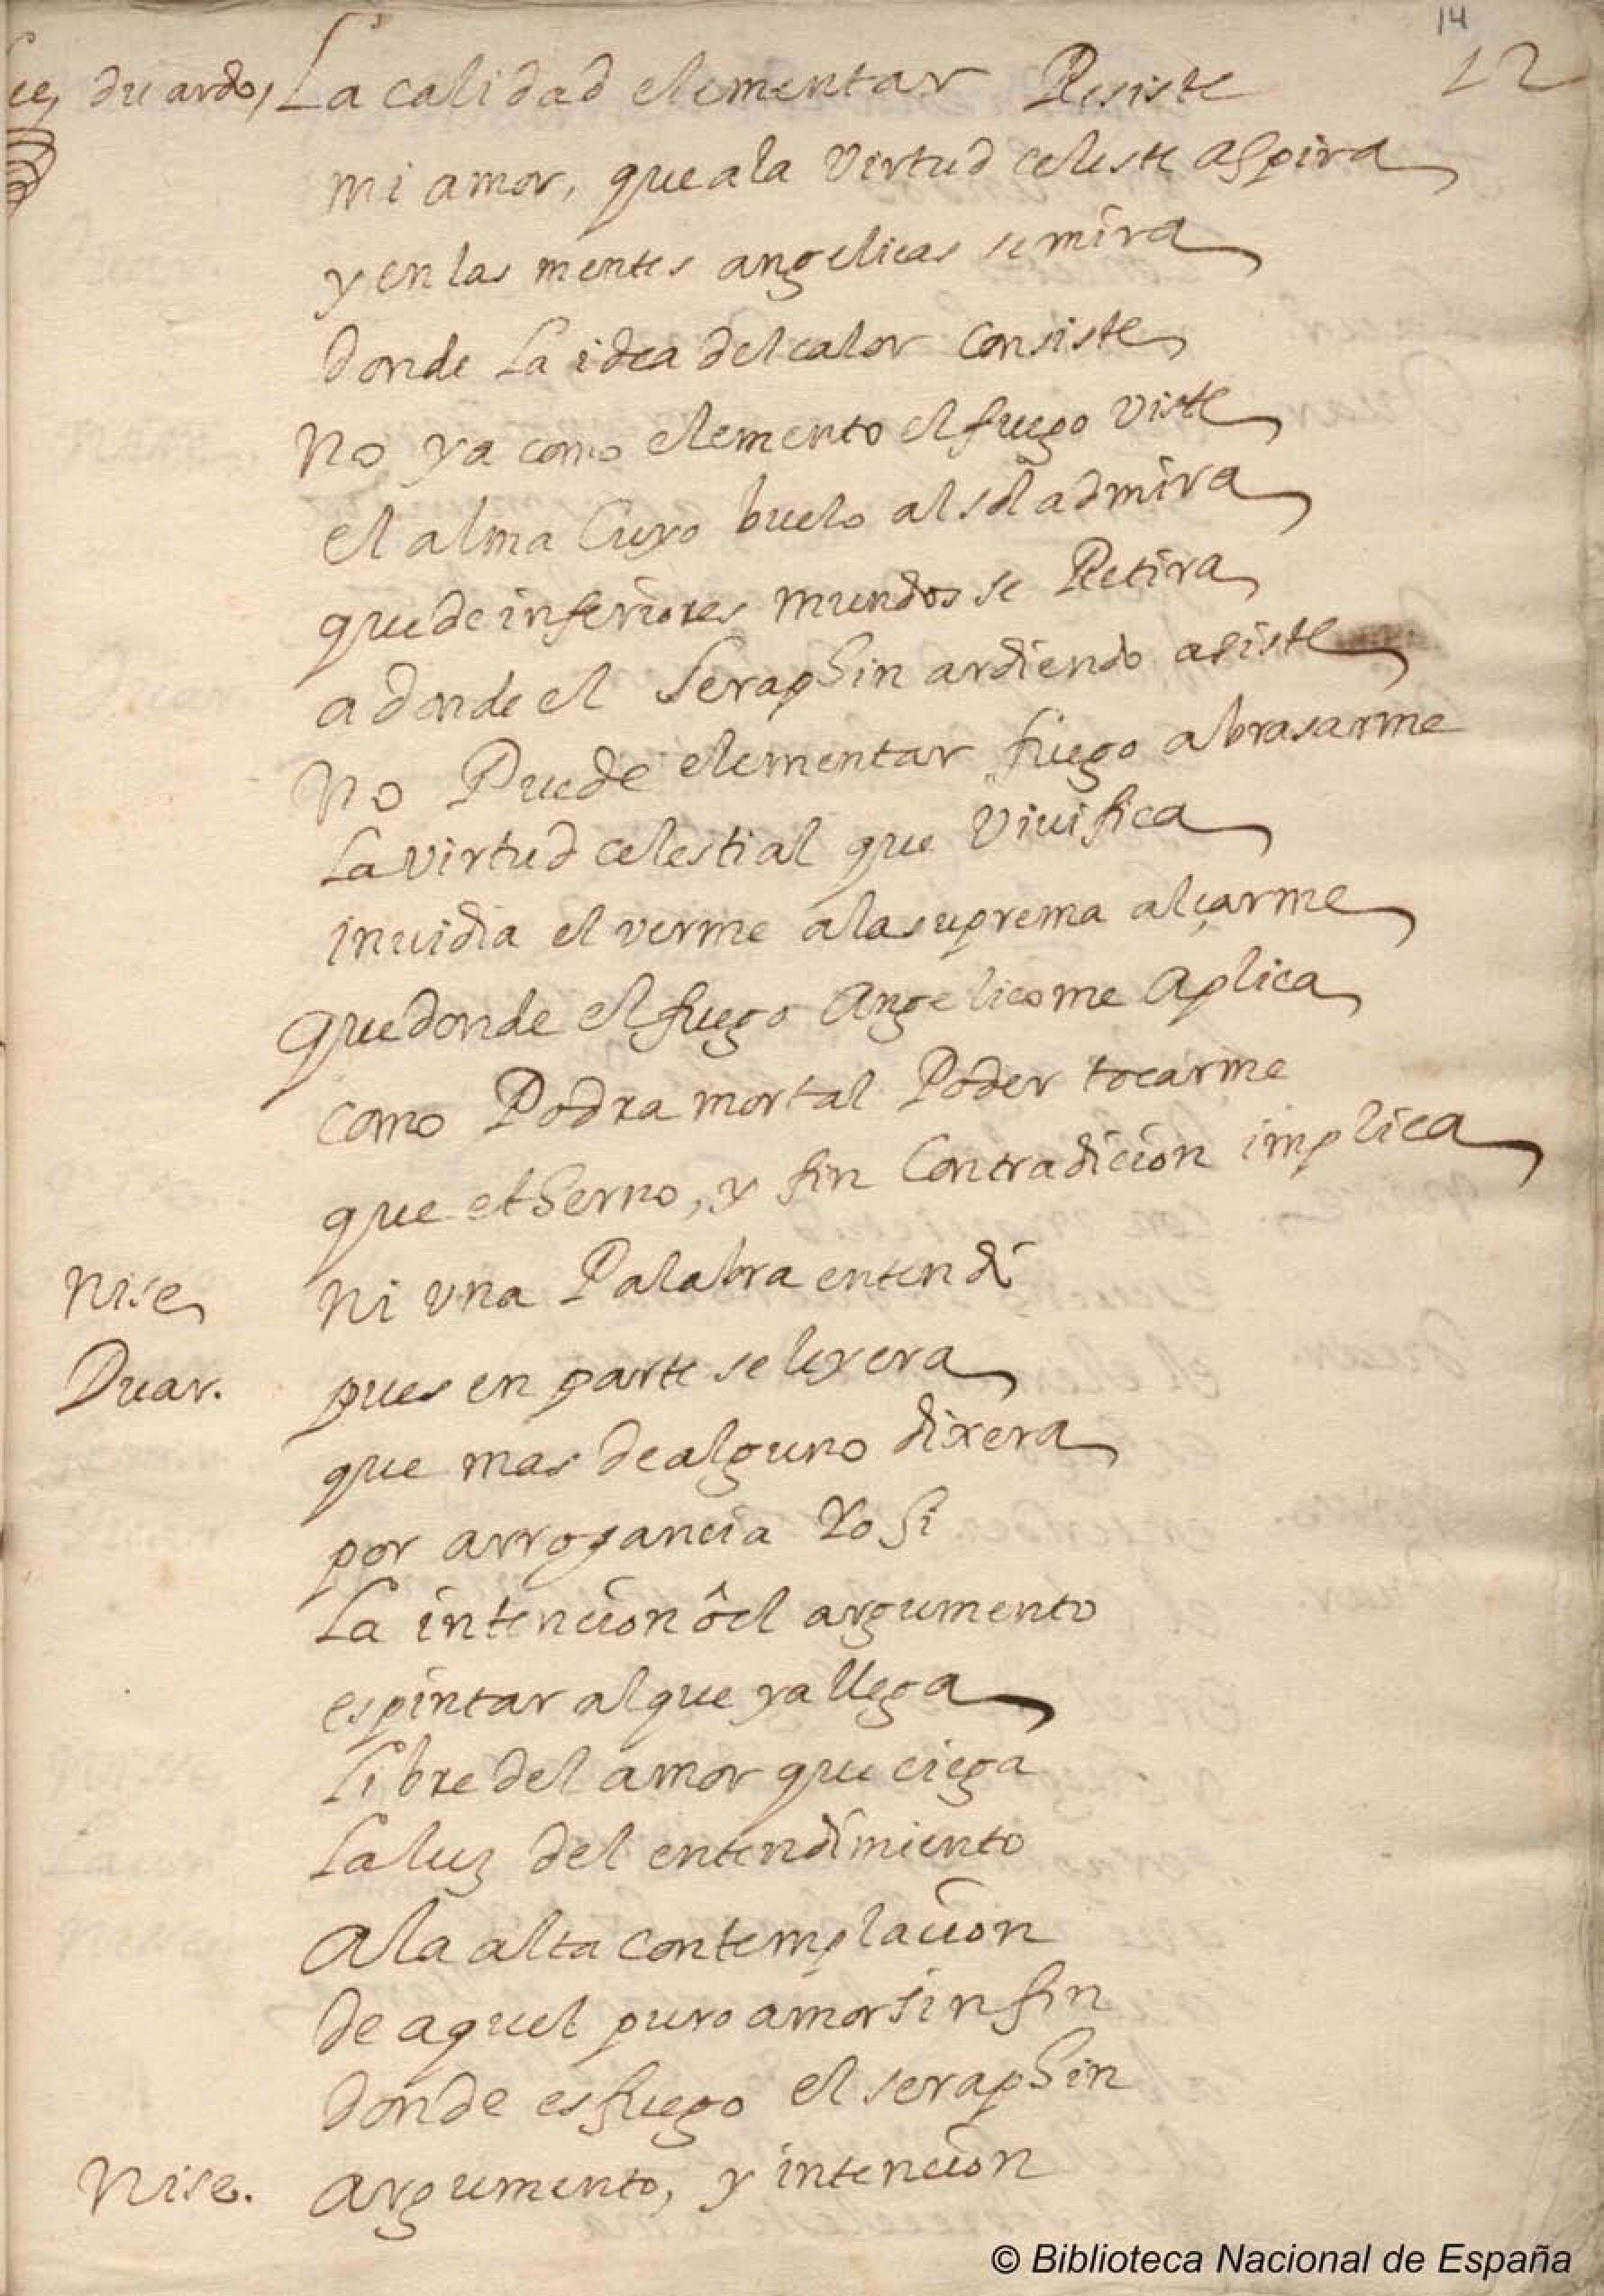 14
12
lee, duardo, La calidad elementar Resiste
mi amor, que ala Virtud celeste aspira
y en las mentes angelicas se mira
donde La idea del calor Consiste
No ya como elemento el fuego Viste
el alma Cuyo buelo al sol admira
que de inferiores mundos se Retira
a donde el Seraphin ardiendo asiste
No Puede elementar fuego abrasarme
La virtud celestial que Viuifica
inuidia el verme a la suprema alçarme
Que donde el fuego Angelico me Aplica
como Podra mortal Poder tocarme
que etherno, y fin Contradicion implica
Nise, Ni vna Palabra entendi
Duar. pues en parte se leyera
que mas de alguno dixera
por arrogancia Yo si
La intencion o el argumento
es pintar al que ya llega
Libre del amor que ciega
La luz del entendimiento
A la alta contemplacion
de aquel puro amor sin fin
donde es fuego el seraphin
Nise. Argumento, y intencion
© Biblioteca Nacional de España